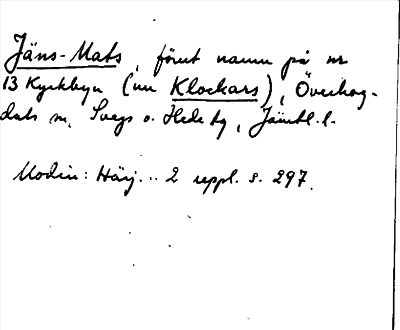 Jäns-Mats, förut namn på nr
13 Kyrkbyn (nu Klockars), Överhog-
dals sn, Svegs o. Hede tg, Jämtl. l.
Modin: Härj... 2 uppl. s. 297.